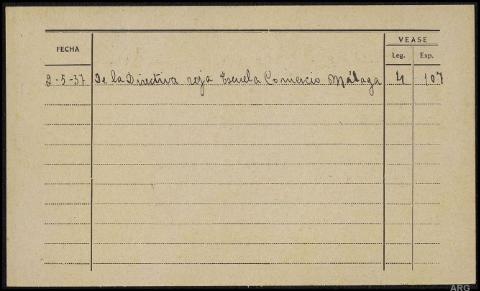 VEASE
FECHA
Leg. Exp.
2-5-37 De la Directiva roja Escuela Comercio Málaga 4 107
ARG